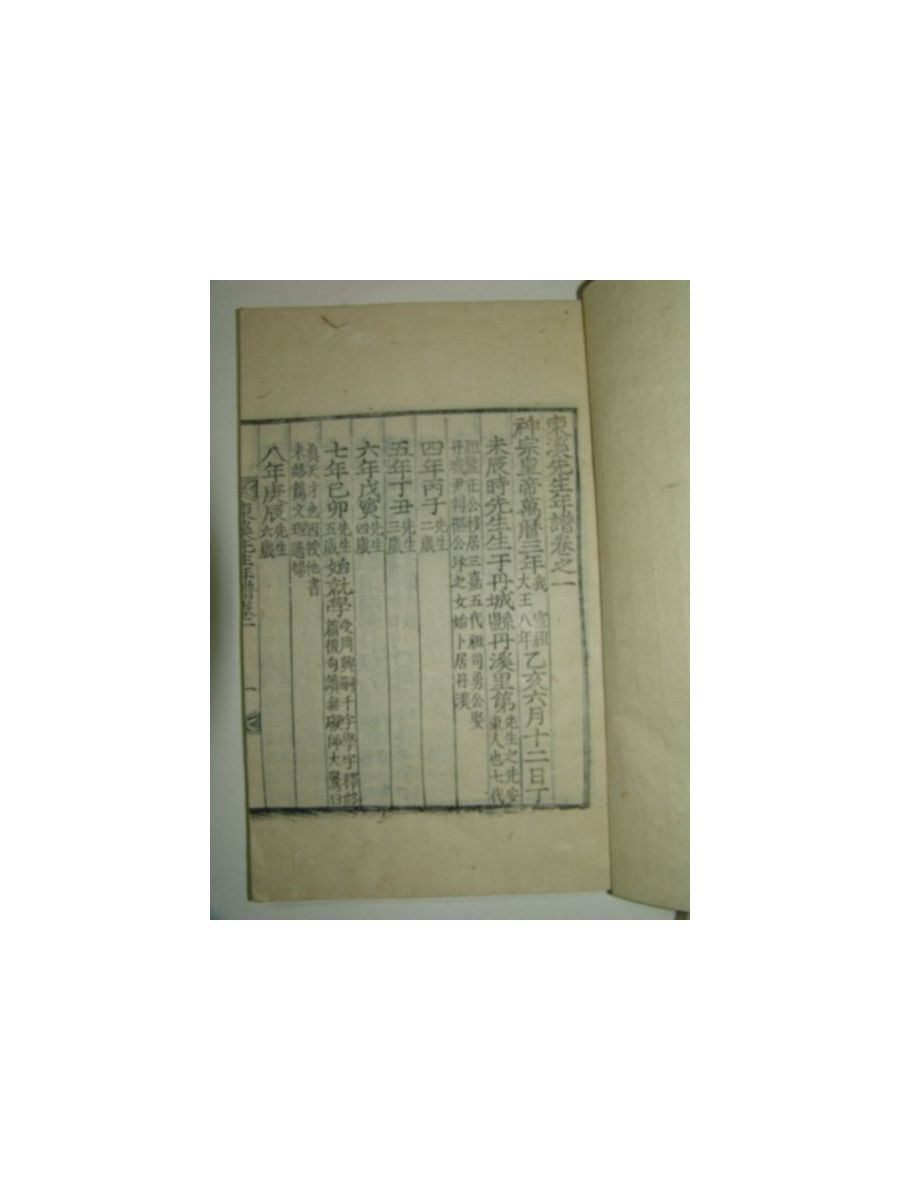 東溪先生年譜卷之一
神宗皇帝萬曆三年我 宣祖大王八年乙亥六月十二日丁
未辰時先生生于丹城縣丹溪里第先生之先安東人也七代
祖監正公移居三嘉五代祖司勇公娶丹城尹 公汴之女始卜居丹溪
四年丙子先生二歲
五年丁丑先生三歲
六年戊寅先生四歲
七年己卯先生五歲始就學受周興嗣千字學字釋 篇後句讀無礙師大驚曰
眞天才也因授他書未終篇文理通暢
八年庚辰先生六歲
東溪先生年譜卷一 一